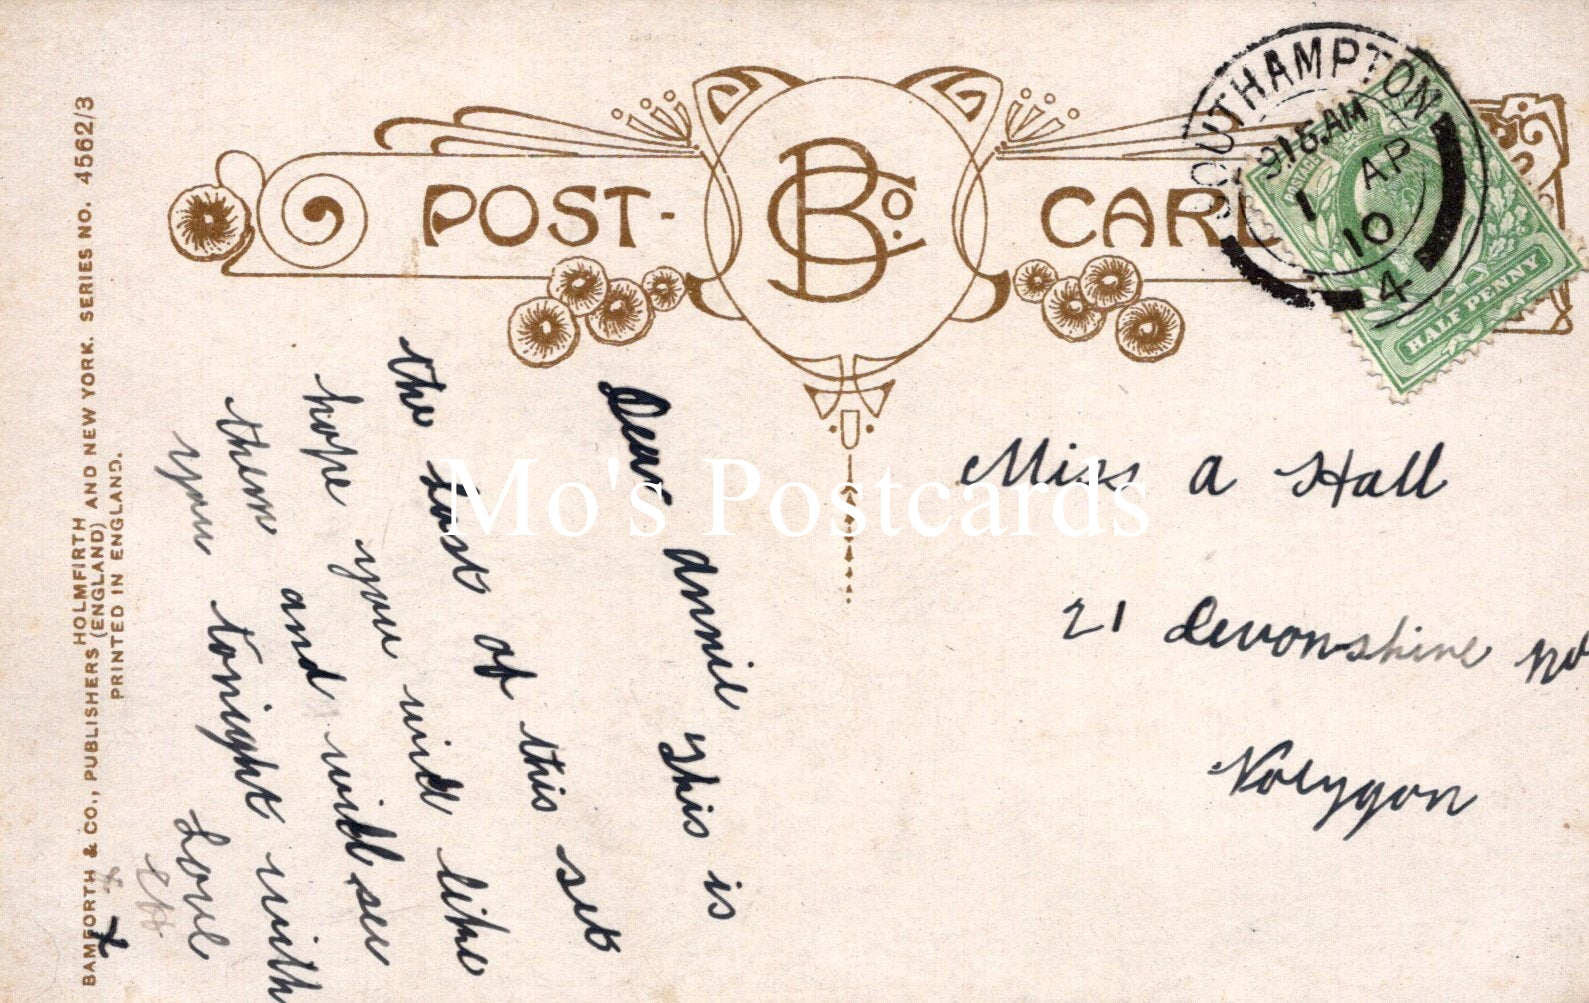 POST- B Co. CARD
SOUTHAMPTON
9.15 AM
1 AP
10
4
HALF PENNY
Dear Annie This is
the last of this set
hope you will like
them and will see
you tonight with
Love
Miss A Hall
21 Devonshire
Polygon
Mo's Postcards
BAMFORTH & CO., PUBLISHERS HOLMFIRTH (ENGLAND) AND NEW YORK. SERIES NO. 4562/3
PRINTED IN ENGLAND.